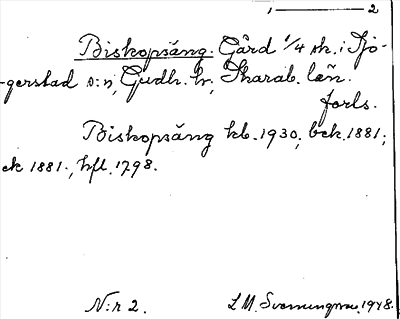 1 — 2
Biskopsäng. Gård 1/4 sk. i Sjö-
gerstad s:n, Gudh. hr, Skarab. län.
forts.
Biskopsäng kb. 1930, bck. 1881,
ck 1881, hfl. 1798.
N:r 2. L M. Svenungsson. 1948.